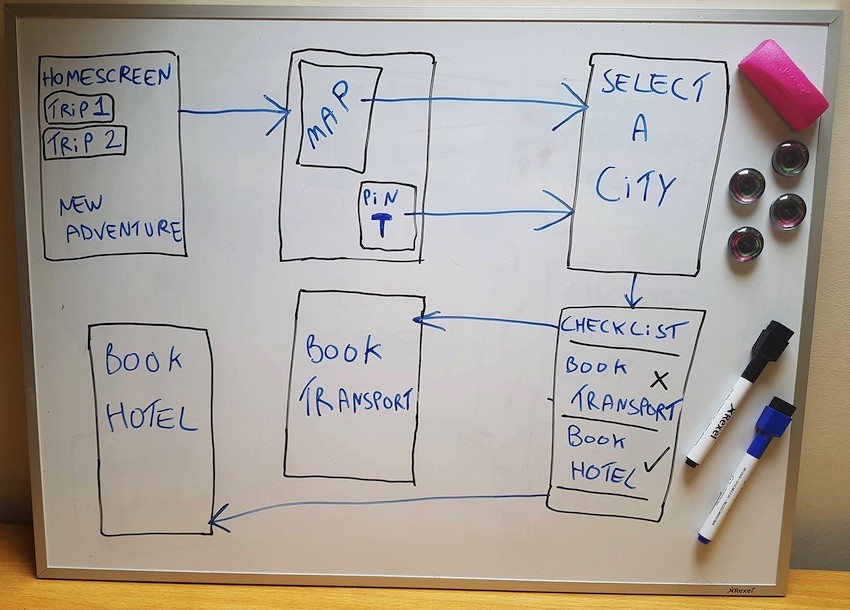 HOMESCREEN
TRiP 1
TRiP 2
NEW
ADVENTURE
MAP
PiN
SELECT
A
CiTY
CHECKLiST
BOOK X
TRANSPORT
BOOK
HOTEL ✓
BOOK
TRANSPORT
BOOK
HOTEL
Rexel
Rexel